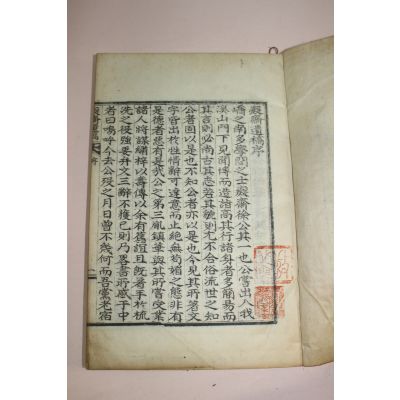 齋遺稿序
嶠之南多學問之士齋徐公其一也公嘗出入我
溪山門下見聞博而造詣高其行詣者多簡易而
其言則必尚古其志若其貌則尤不合俗流世之知
公者固以是也不知公者亦以是也今見其所著文
字皆出於性情辭可達意而止絶無苟媚之態非有
是德者惡有是哉公之第三胤鎭華與其所嘗受業
諸人將謀繡梓以壽傳以余有舊誼且旣著手於梳
洗之役強要弁文三辭不獲已則乃畧書所感于中
者曰嗚呼今去公歿之月日曾不幾何而吾黨老宿